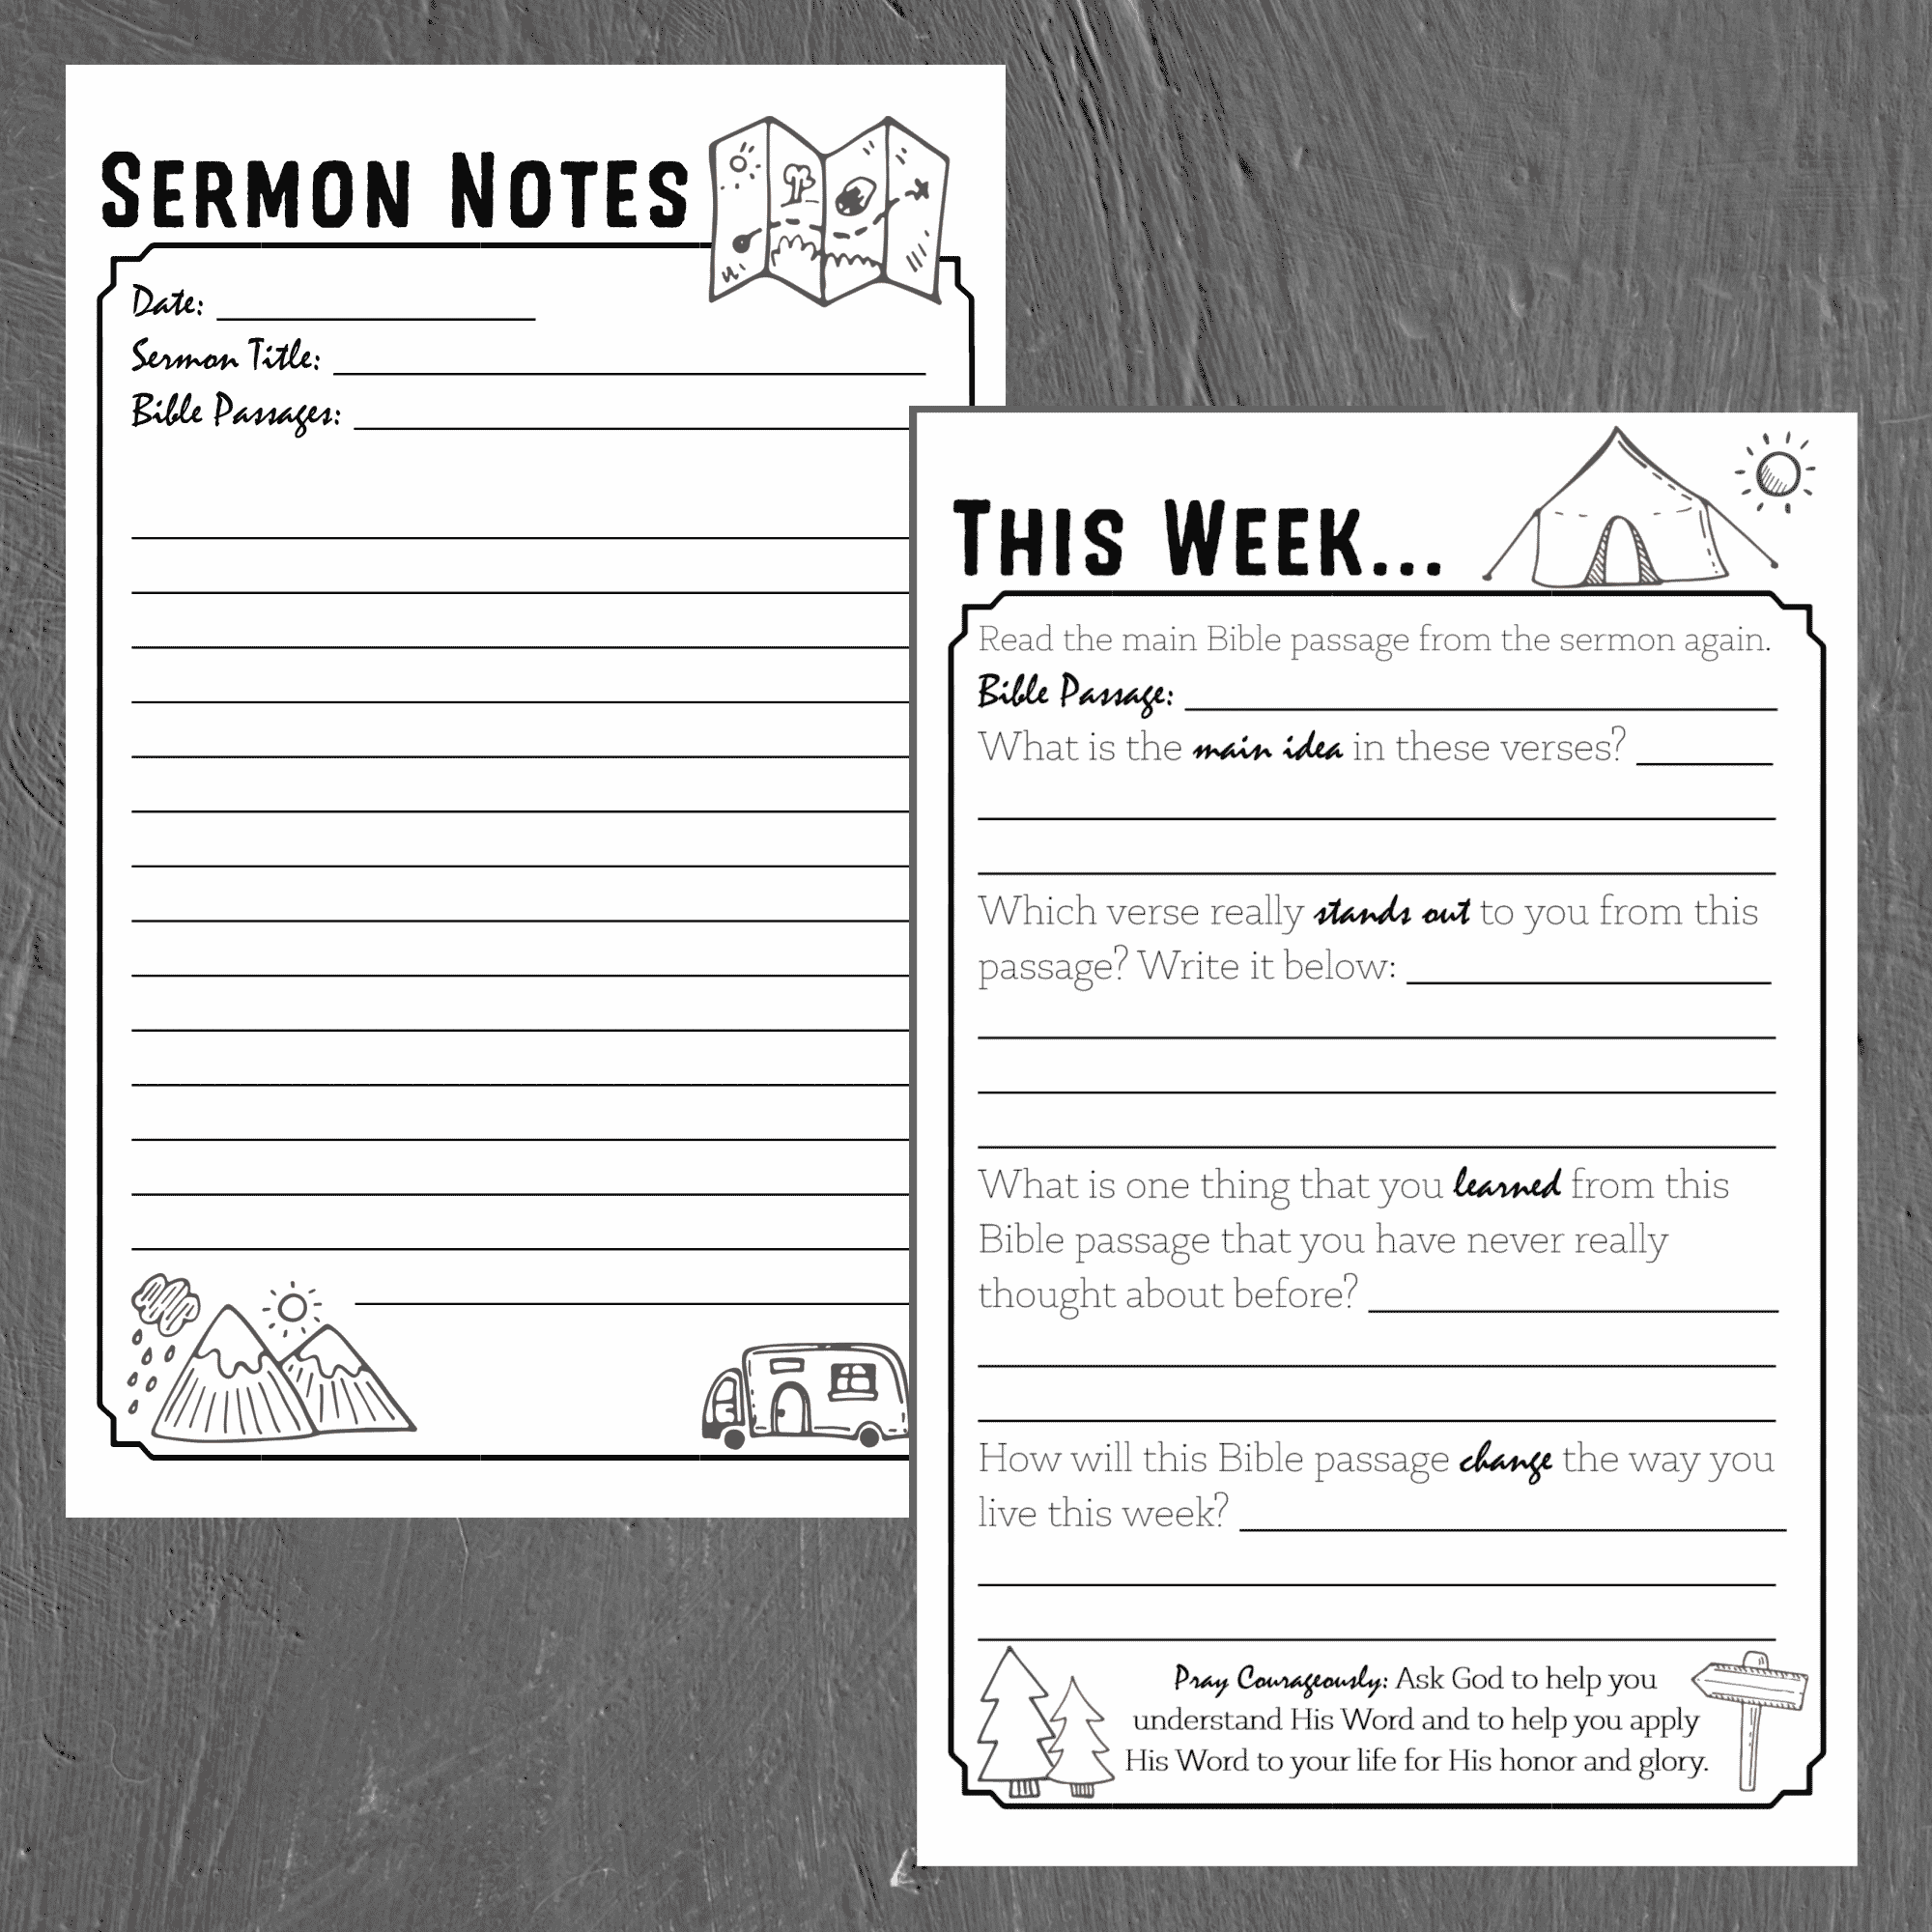 SERMON NOTES
Date:
Sermon Title:
Bible Passages:
THIS WEEK...
Read the main Bible passage from the sermon again.
Bible Passage:
What is the main idea in these verses?
Which verse really stands out to you from this
passage? Write it below:
What is one thing that you learned from this
Bible passage that you have never really
thought about before?
How will this Bible passage change the way you
live this week?
Pray Courageously: Ask God to help you
understand His Word and to help you apply
His Word to your life for His honor and glory.